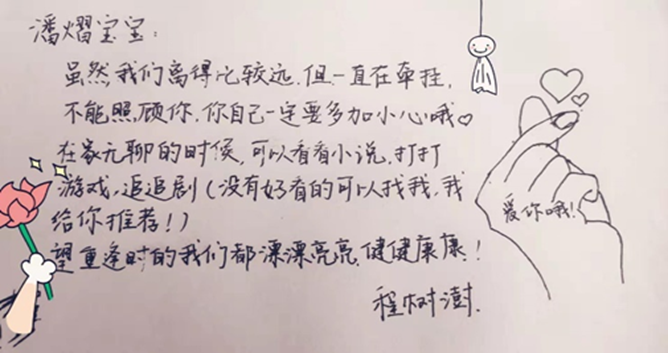 潘熠宝宝：
虽然我们离得比较远，但一直在牵挂，
不能照顾你，你自己一定要多加小心哦
在家无聊的时候，可以看看小说，打打
游戏，追追剧（没有好看的可以找我，我
给你推荐！）
望重逢时的我们都漂漂亮亮，健健康康！
程树澍．
爱你哦！